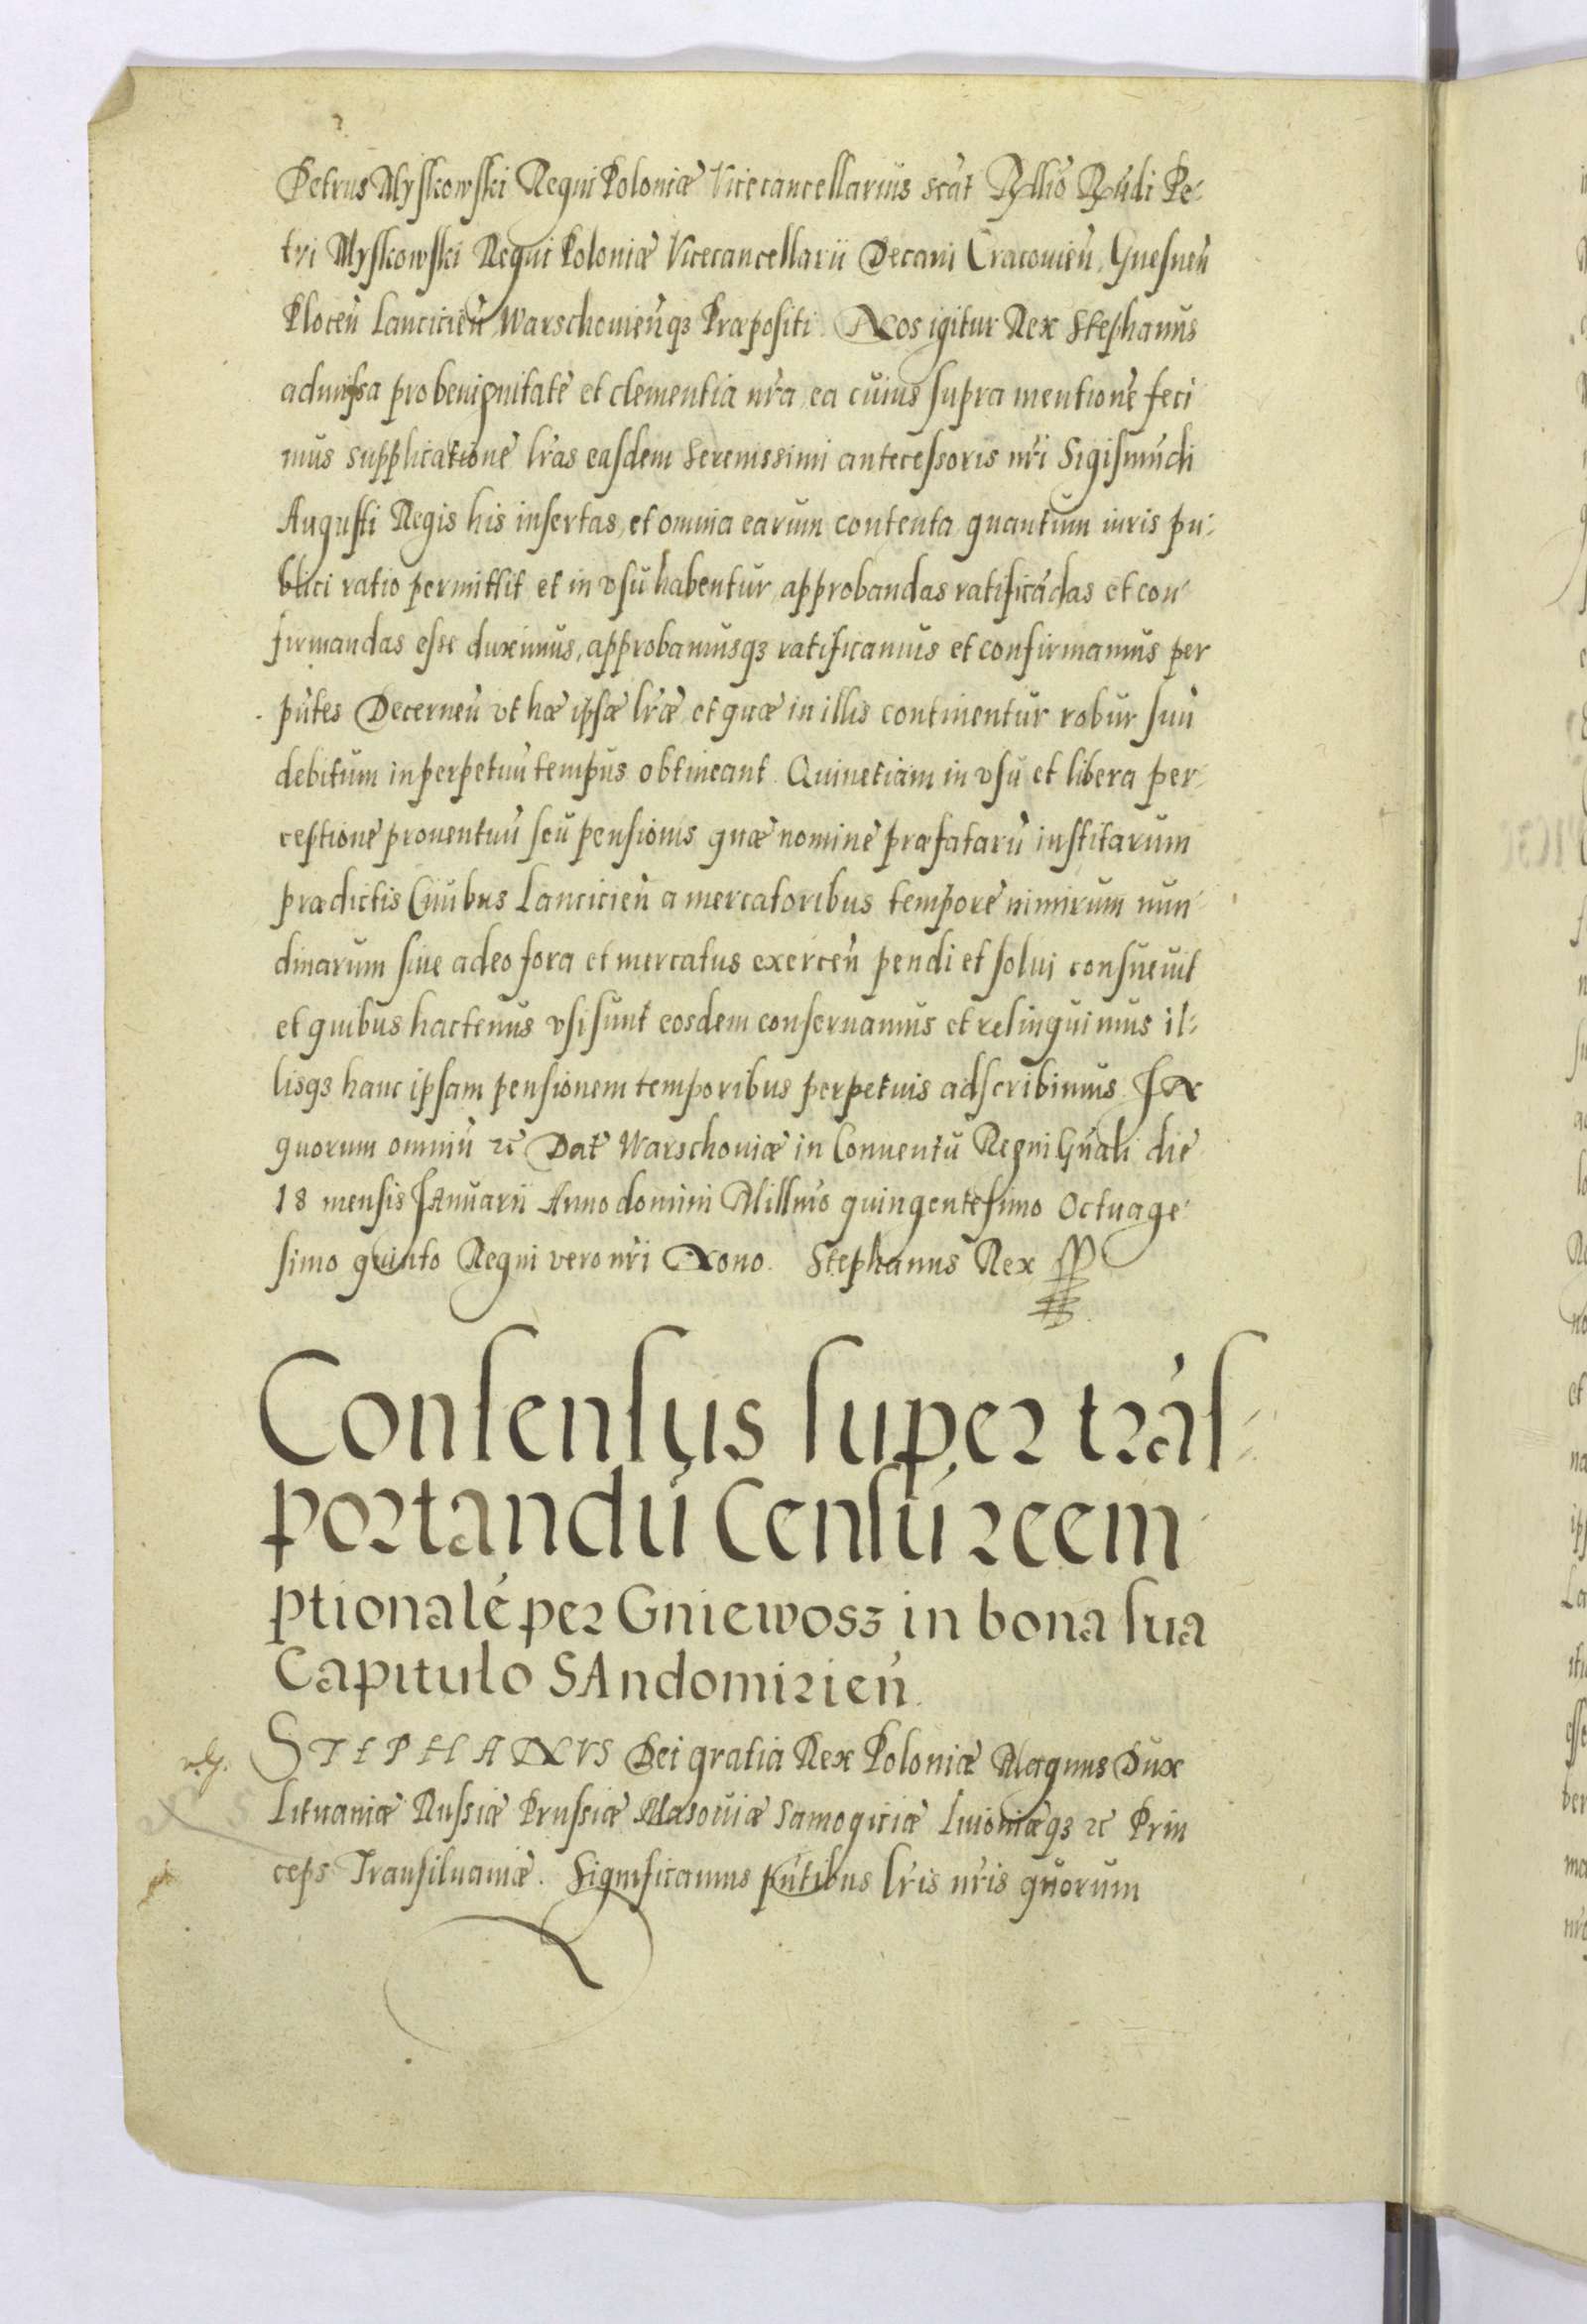 Petrus Myſkowſki Regni Poloniæ Vicecancellarius scắt Rllió Rńdi Pe-
tri Myſkowſki Regni Poloniæ Vicecancellarii Decani Cracouień, Gneſneń
Ploceń Lancicień Warschouieńqȝ Præpositi. Nos igitur Rex Stephanus
admiſsa pro benignitatė et clementia nŕa ea cuius ſupra mentionė feci
mus supplicationė lŕas eaſdem Serenissimi anteceſsoris nŕi Sigiſmúdi
Auguſti Regis his inſertas, et omnia earum contenta quantum iuris pu-
blici ratio permittit et in vſu habentur, approbandas ratificádas et con-
firmandas eſse duximus, approbamusqȝ ratificamus et confirmamus per
pńtes Decerneń vt hæ ipſæ lŕæ et quæ in illis continentur robur ſuú
debitum in perpetuú tempus obtineant. Quinetiam in vſu et libera per-
ceptionė prouentuú ſeu pensionis quæ nominė præfatarú inſtitarum
prædictis Ciuibus Lancicień a mercatoribus temporė nimirum nun-
dinarum ſiue adeo fora et mercatus exerceń pendi et ſolui conſueuit
et quibus hactenus vſi ſunt eosdem conſeruamus et relinquimus il-
lisqȝ hanc ipſam penſionem temporibus perpetuis adſcribimus. In
quorum omniú ꝛc̃ Dat̃ Warschouiæ in Conuentu Regni Gńali die
18 mensis IAnuarii Anno domini Millmo quingenteſimo Octuage-
simo quinto Regni vero nŕi Nono. Stephanus Rex
Conſenſus ſuper tráſ-
portandú Cenſú reem
ptionalé per Gniewosz in bona ſua
Capitulo SAndomirień.
STEPHANVS Dei gratia Rex Poloniæ Magnus Dux
Lituaniæ Ruſsiæ Pruſsiæ Masouiæ Samogitiæ Liuoniæqȝ ꝛc̃ Prin
ceps Tranſiluaniæ. Significamus pńtibus lŕis nŕis quorum